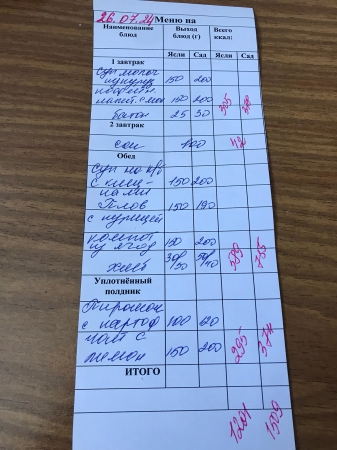 26.07.24 Меню на
Наименование блюд Выход блюд (г) Всего ккал:
Ясли Сад Ясли Сад
1 завтрак
суп молоч 150 200
напит. с мол 150 200
батон 25 30
2 завтрак
сок 100 42
Обед
суп
с клец- 150 200
ками
Плов 150 190
с курицей
компот 150 200
из ягод 755
хлеб
Уплотнённый
полдник
Пирожок
с картоф 100 120
чай с 295 374
лимон 150 200
ИТОГО
1201 1509